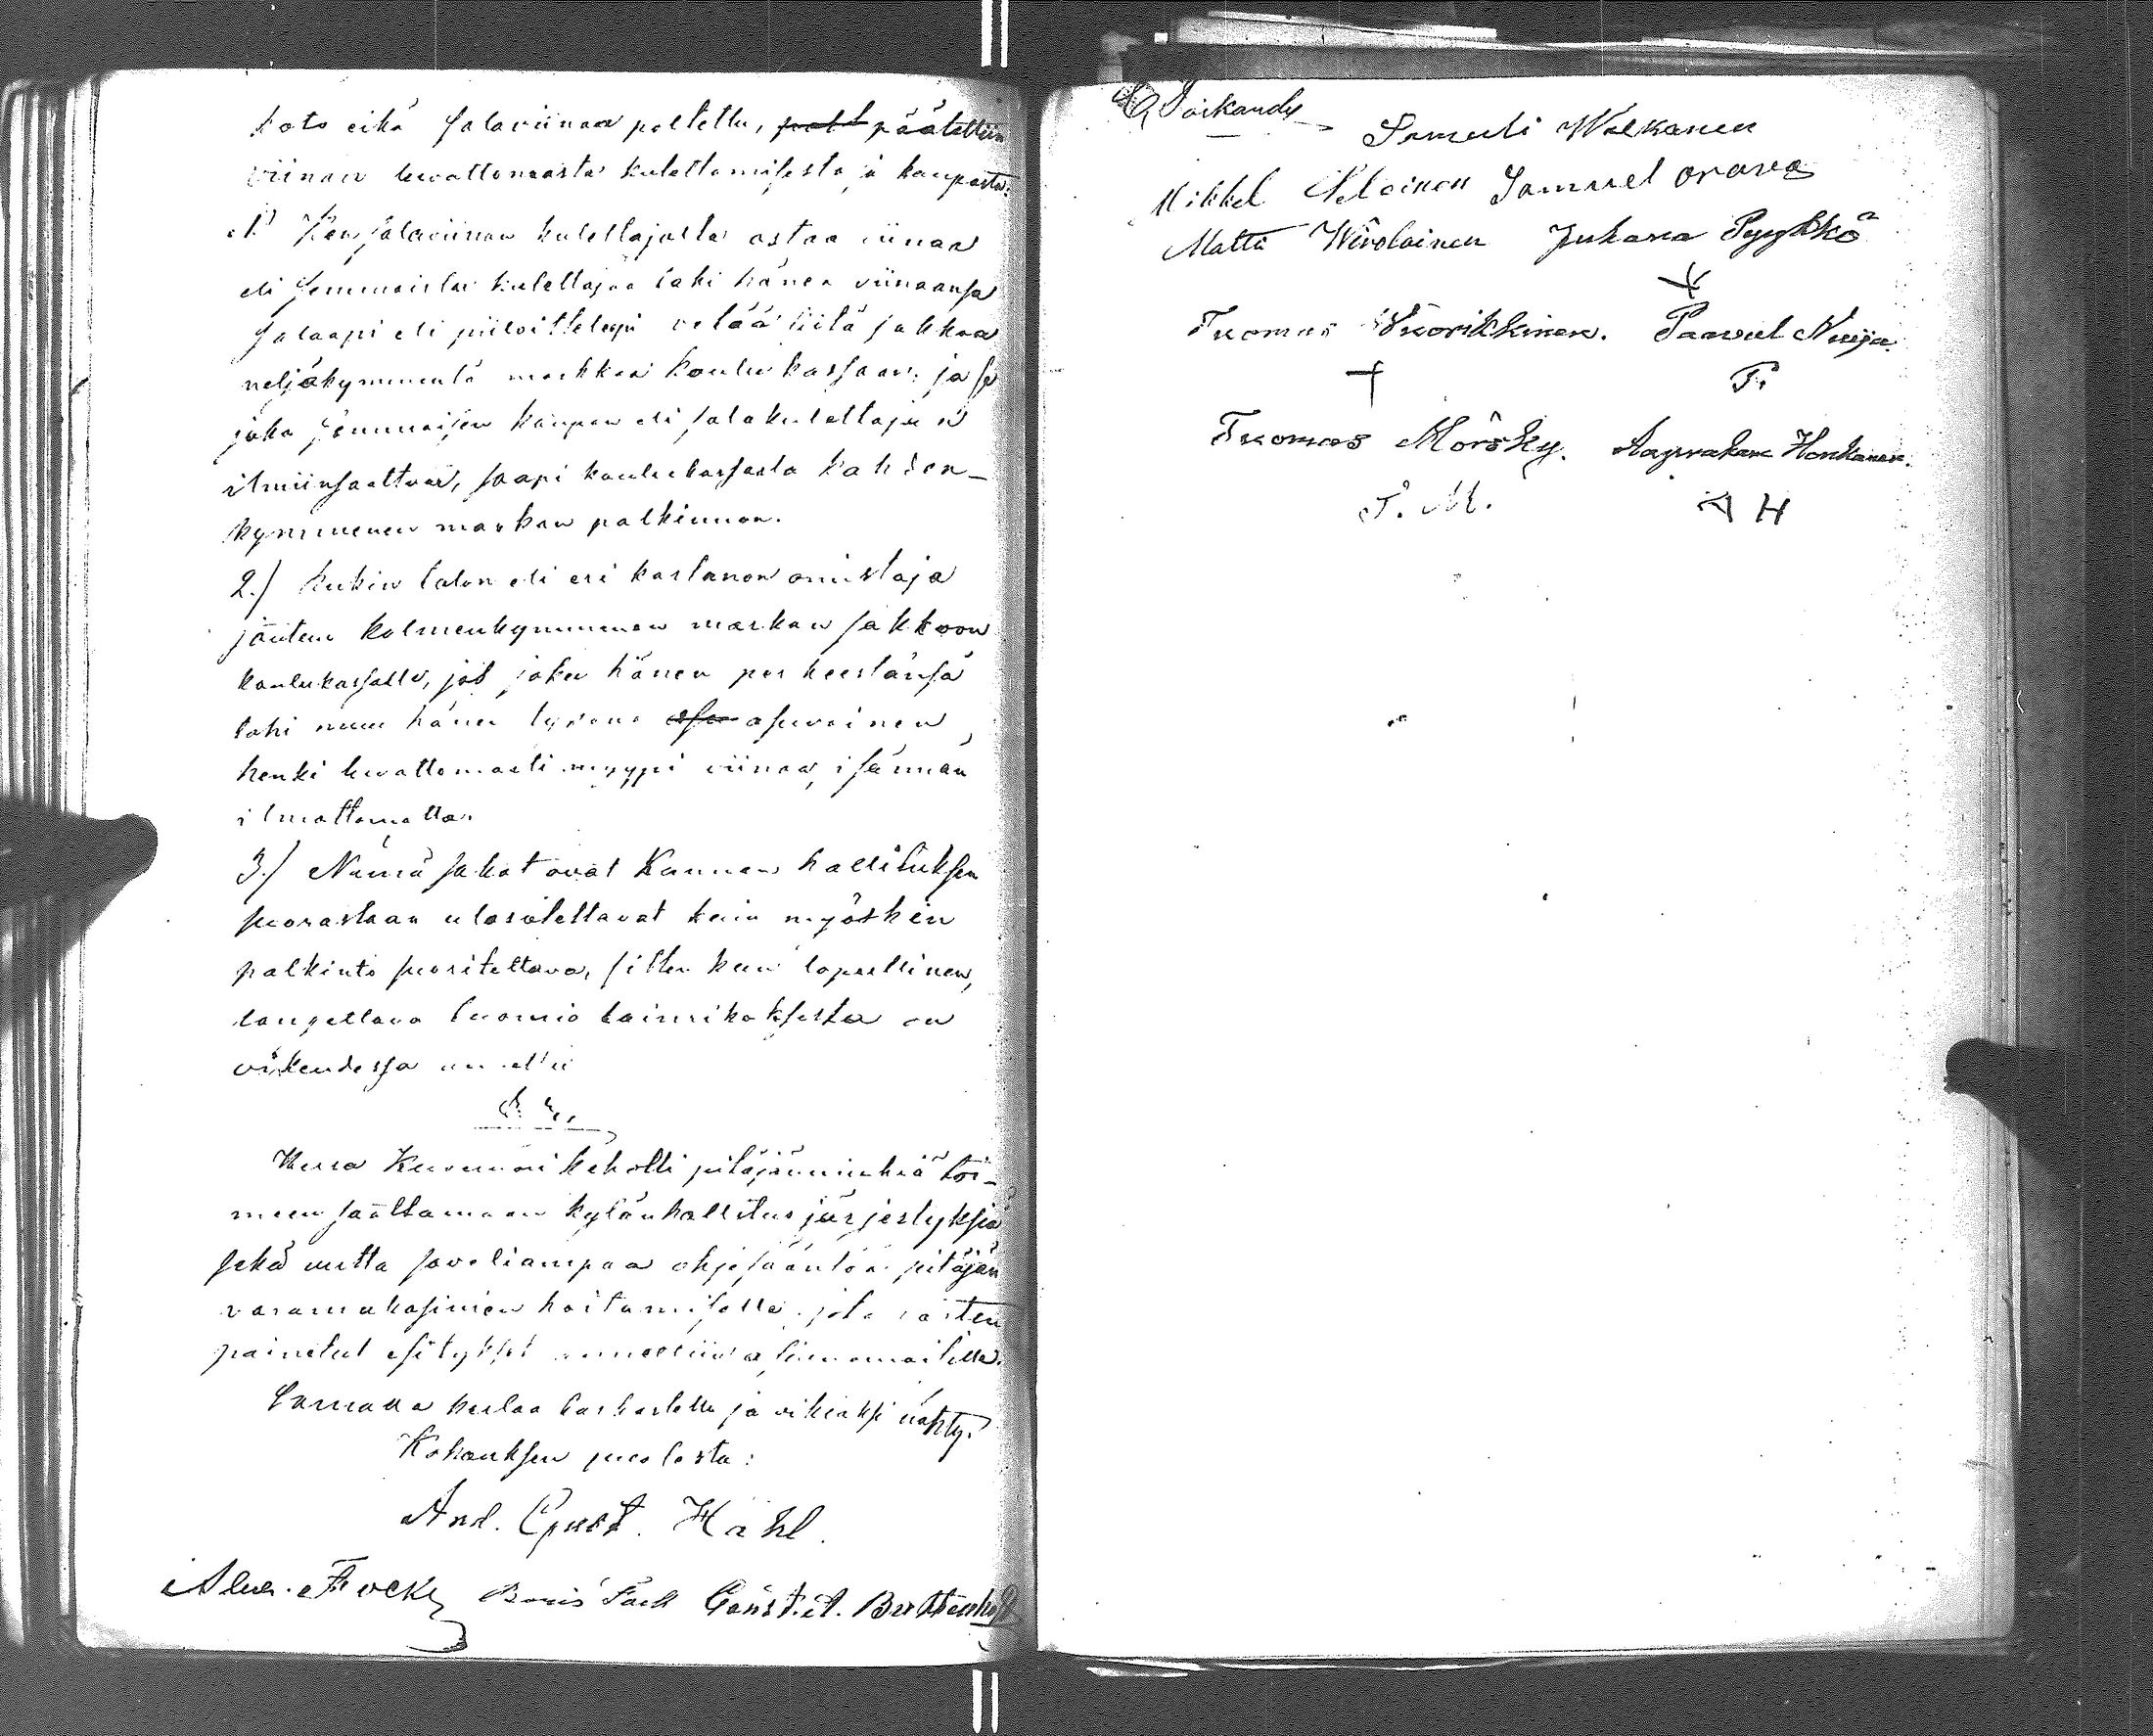 koto eikä salaviinaa poltettu, päätettiin
viinan luvattomasta kulettamisesta ja kaupasta:
1) Ken salaviinan kulettajalta ostaa viinaa
eli semmoista kulettajaa taki hänen viinaansa
salaapi eli piiloittelepi vetää siitä sakkoa
neljäkymmentä markkaa koulu kassaan; ja se
joka semmoisen kaupan eli salakulettajan
ilmiinsaattaa, saapi koulukassasta kahden-
kymmenen markan palkinnon.
2.) Kukin talon eli eri kartanon omistaja
joutuu kolmenkymmenen markan sakkoon
koulukassalle, jos joku hänen perheestänsä
tahi muu hänen luvattomasti asuvainen
henki luvattomasti myypi viinaa, isännän
ilmoittamatta.
3.) Nämä sakot ovat Kunnan hallituksen
suorastaan ulosotettavat kuin myöskin
palkinto suoritettava, sitten kun lopullinen,
langettava tuomio kaimikoksesta on
oikeudessa annettu
Herra Kuvernöri kehotti pitäjänmiehiä toi-
meen saattamaan kylänhallitus järjestyksiä
sekä uutta soveliampaa ohjesääntöä pitäjän
varamakasinien hoitamiselle, jota varten
painetut esitykset annettiin
Samalla luettu tarkastettu ja oikiaksi nähty.
Kokouksen puolesta:
And. Gust. Håhl.
Alex. Fock Boris Fock Const. A.
Samuli Walkanen
Mikkel Samuel orava
Matti Wirolainen Juhana Pyykkö
Tuomas Wuorikkinen. Paavel Nuija.
Tuomas Mörsky. Aapraham Honkanen.
T. M. A H